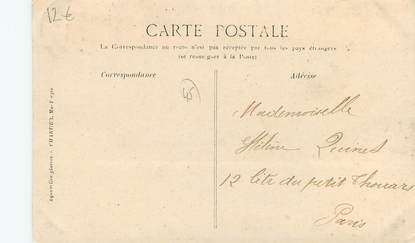 12 €
CARTE POSTALE
La Correspondance au recto n'est pas acceptée par tous les pays étrangers
(se renseigner à la Poste)
Correspondance
Adresse
45
Mademoiselle
Hélène Quinet
12 Cité du petit Thouars
Paris